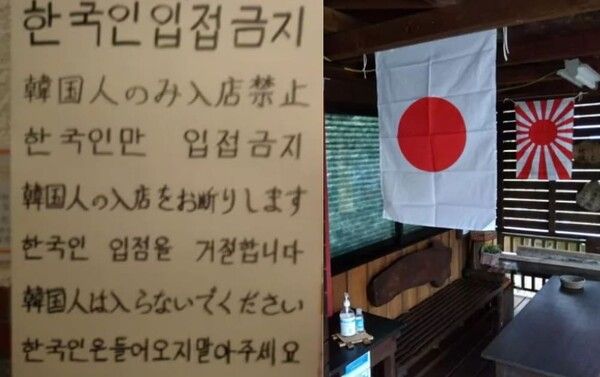 한국인입접금지
韓国人のみ入店禁止
한국인만 입접금지
韓国人の入店をお断りします
한국인 입점을 거절합니다
韓国人は入らないでください
한국인은들어오지말아주세요